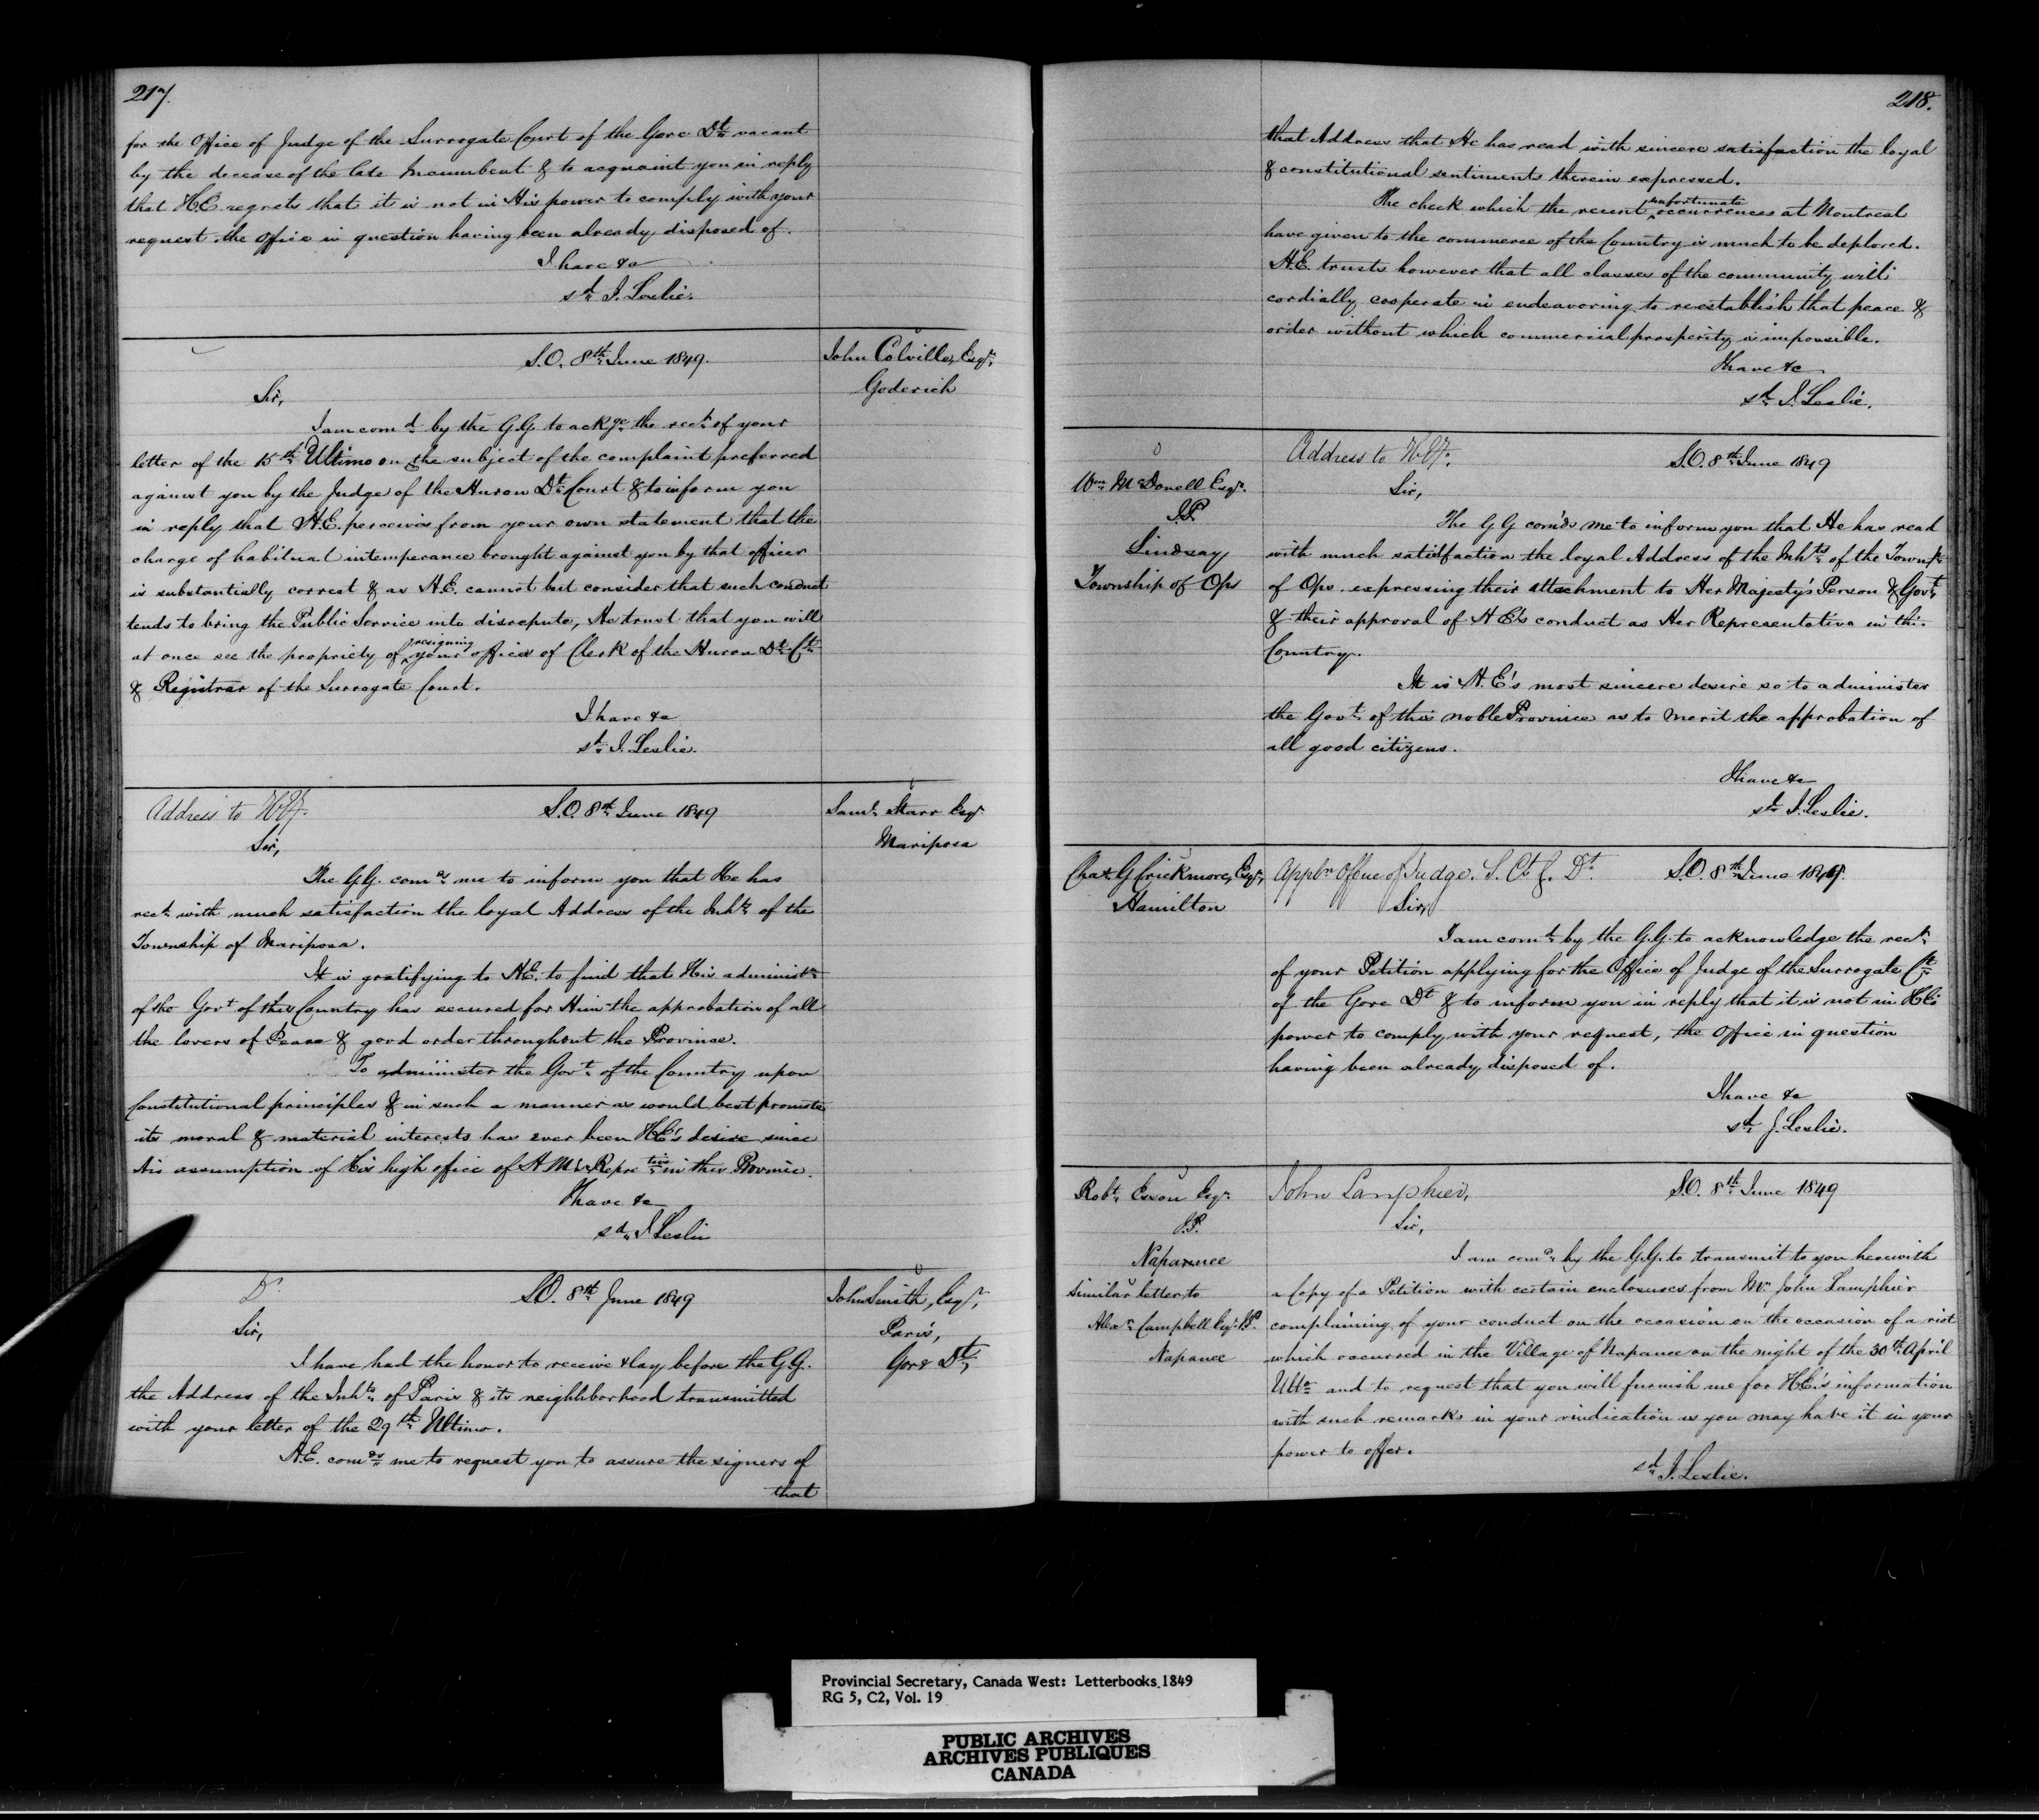 217.
for the Office of Judge of the Surrogate Court of the Gore Dt. vacant
by the decease of the late Incumbent & to acquaint you in reply
that H.E. regrets that it is not in His power to comply with your
request the office in question having been already disposed of.
I have &c
sd. J. Leslie.
S.O. 8th June 1849.
John Colville, Esqr,
Goderich
Sir,
I am comd. by the G.G. to ackge. the rect. of your
letter of the 15th Ultimo on the subject of the complaint preferred
against you by the Judge of the Huron Dt. Court & to inform you
in reply that H.E. perceives from your own statement that the
charge of habitual intemperance brought against you by that officer
is substantially correct & as H.E. cannot but consider that such conduct
tends to bring the Public Service into disrepute, He trust that you will
at once see the propriety of resigning your offices of Clerk of the Huron Dt. Ct.
& Registrar of the Surrogate Court.
I have &c
sd. J. Leslie.
Address to
S.O. 8th June 1849
Saml. Starr Esqr
Mariposa
Sir,
The G.G. comds me to inform you that He has
recd. with much satisfaction the loyal Address of the Inhts. of the
Township of Mariposa.
It is gratifying to H.E. to find that His administn.
of the Govt of this Country has secured for Him the approbation of all
the lovers of Peace & good order throughout the Province.
To administer the Govt. of the Country upon
Constitutional principles & in such a manner as would best promote
its moral & material interests has ever been H.E's desire since
His assumption of His high office of H M's Repretive in this Province.
I have &c
sd. J Leslie
Do.
S.O. 8th June 1849
John Smith, Esqr,
Paris,
Gore Dt,
Sir,
I have had the honor to receive & lay before the G.G.
the Address of the Inhts. of Paris & its neighborhood transmitted
with your letter of the 29th Ultimo.
H.E. comds. me to request you to assure the signers of
that
218.
that Address that He has read with sincere satisfaction the loyal
& constitutional sentiments therein expressed.
The check which the recent unfortunate occurrences at Montreal
have given to the commerce of the Country is much to be deplored.
H.E. trusts however that all classes of the community will
cordially cooperate in endeavoring to reestablish that peace &
order without which commercial prosperity is impossible.
I have &c
sd. J. Leslie.
Wm. McDonell Esqr.
J.P.
Lindsay
Township of Ops
Address to
S.O. 8th June 1849
Sir,
The G G comds me to inform you that He has read
with much satisfaction the loyal Address of the Inhts. of the Townsp.
of Ops expressing their attachment to Her Majesty's Person & Govt.
& their approval of H E's conduct as Her Representative in this
Country.
It is H.E's most sincere desire so to administer
the Govt. of this noble Province as to merit the approbation of
all good citizens.
I have &c
sd. J. Leslie.
Chas. G Crickmore, Esqr,
Hamilton
Appln Office of Judge. S. Ct G. Dt.
S.O. 8th June 1849.
Sir,
I am comd. by the G.G. to acknowledge the rect.
of your Petition applying for the Office of Judge of the Surrogate Ct.
of the Gore Dt & to inform you in reply that it is not in H.E's
power to comply with your request, the office in question
having been already disposed of.
I have &c
sd. J. Leslie.
Robt. Esqr.
J.P.
Napanee
Similar letter to
Alexr. Campbell Esqr. J.P.
Napanee
John Lamphier,
S.O. 8th June 1849
Sir,
I am comd. by the G.G. to transmit to you herewith
a Copy of a Petition with certain enclosures from Mr. John Lamphier
complaining of your conduct on the occasion on the occasion of a riot
which occurred in the Village of Napanee on the night of the 30th April
Ulto. and to request that you will furnish me for H.E's information
with such remarks in your vindication as you may have it in your
power to offer.
sd. J. Leslie.
Provincial Secretary, Canada West: Letterbooks 1849
RG 5, C2, Vol. 19
PUBLIC ARCHIVES
ARCHIVES PUBLIQUES
CANADA